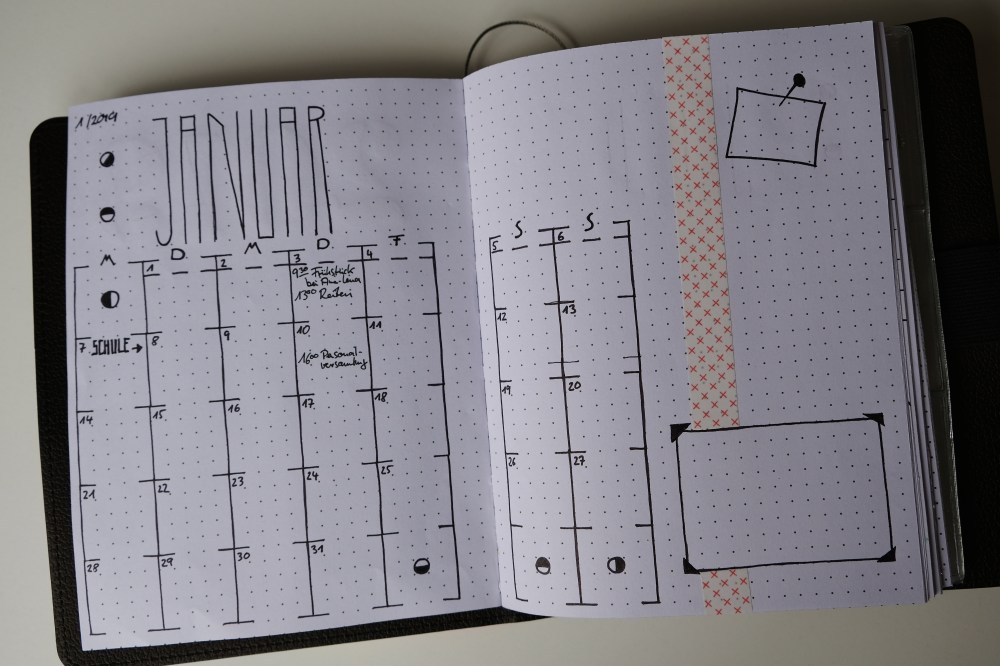 1/2019
JANUAR
M D M D F
1 2 3 4
9:30 Frühstück
bei Ana-Lena
13:00 Reiten
7 SCHULE → 8 9 10 11
16:00 Personal-
versammlung
14 15 16 17 18
21 22 23 24 25
28 29 30 31
S S
5 6
12 13
19 20
26 27